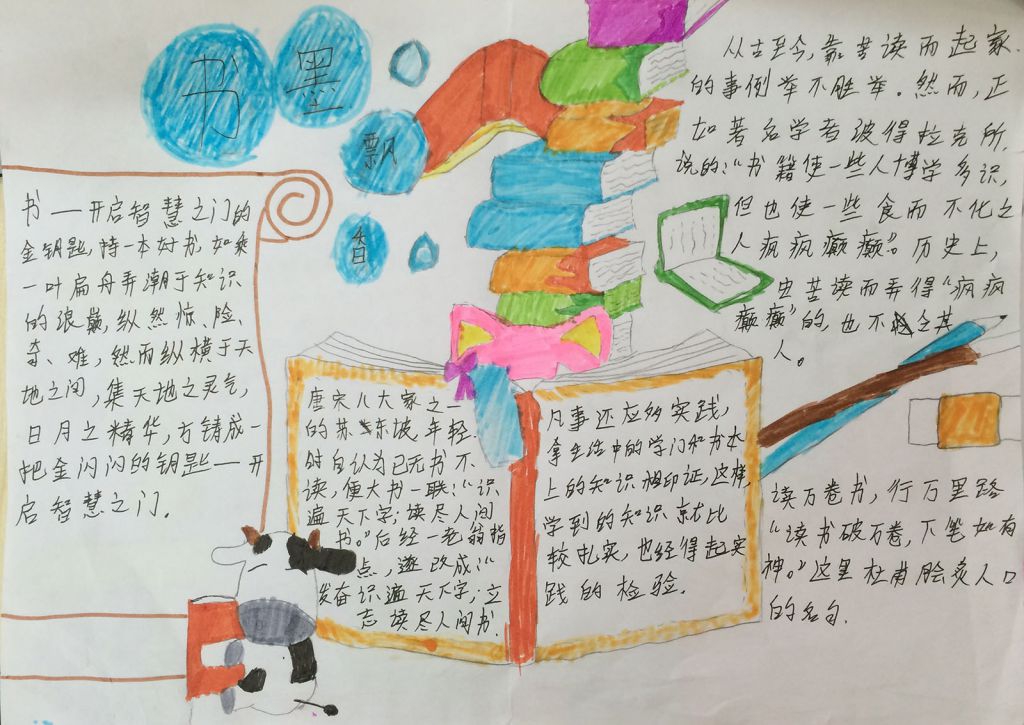 书
墨
飘
香
书——开启智慧之门的
金钥匙,恃一本好书,如乘
一叶扁舟弄潮于知识
的浪巅,纵然惊、险、
奇、难,然而纵横于天
地之间,集天地之灵气,
日月之精华,方铸成一
把金闪闪的钥匙——开
启智慧之门.
唐宋八大家之一
的苏东坡,年轻
时自认为已无书不
读,便大书一联:“识
遍天下字;读尽人间
书。”后经一老翁指
点,遂改成:“
发奋识遍天下字;立
志读尽人间书.
凡事还应多实践,
拿生活中的学门和书本
上的知识相印证,这样,
学到的知识就比
较扎实,也经得起实
践的检验.
从古至今,靠苦读而起家
的事例举不胜举.然而,正
如著名学者彼得拉克所
说的:“书籍使一些人博学多识,
但也使一些食而不化之
人疯疯癫癫”。历史上,
由苦读而弄得“疯疯
癫癫”的,也不乏其
人。
读万卷书,行万里路
“读书破万卷,下笔如有
神。”这里杜甫脍炙人口
的名句.